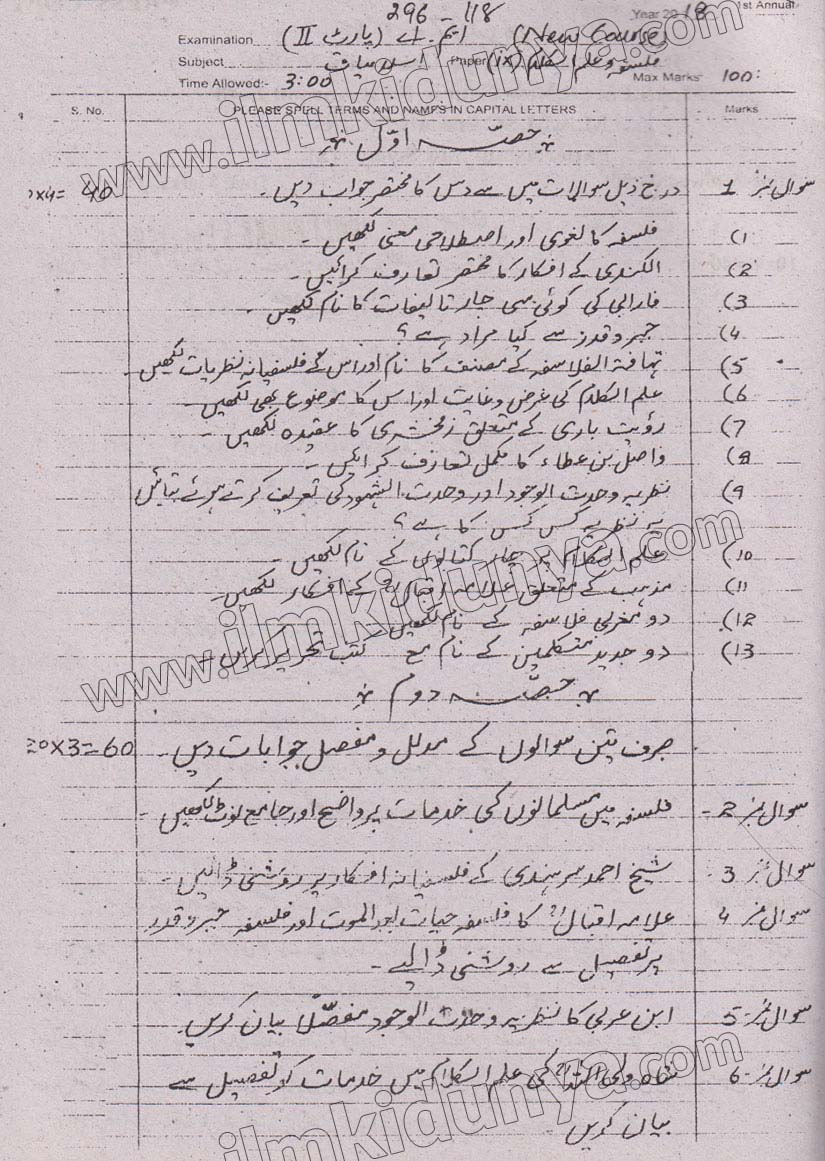 296-118
Year 2018 1st Annual
Examination ایم۔اے (پارٹ II) (New Course)
Subject اسلامیات Paper (IX) فلسفہ و علم الکلام
Time Allowed:- 3:00 Max Marks 100:
S. No. PLEASE SPELL TERMS AND NAMES IN CAPITAL LETTERS Marks
حصّہ اوّل
سوال نمبر 1 درج ذیل سوالات میں سے دس کا مختصر جواب دیں۔ x4= 40
1) فلسفہ کا لغوی اور اصطلاحی معنی لکھیں۔
2) الکندی کے افکار کا مختصر تعارف کرائیں۔
3) فارابی کی کوئی سی چار تالیفات کا نام لکھیں۔
4) جبر و قدر سے کیا مراد ہے؟
5) تہافۃ الفلاسفہ کے مصنف کا نام اور اس کے فلسفیانہ نظریات لکھیں۔
6) علم الکلام کی غرض و غایت اور اس کا موضوع بھی لکھیں۔
7) رؤیت باری کے متعلق زمخشری کا عقیدہ لکھیں۔
8) واصل بن عطاء کا مکمل تعارف کرائیں۔
9) نظریہ وحدت الوجود اور وحدت الشہود کی تعریف کرتے ہوئے بتائیں
یہ نظریہ کس کس کا ہے؟
10) علم الکلام پر چار کتابوں کے نام لکھیں۔
11) مذہب کے متعلق علامہ اقبالؒ کے افکار لکھیں۔
12) دو مغربی فلاسفہ کے نام لکھیں۔
13) دو جدید متکلمین کے نام مع کتب تحریر کریں۔
حصّہ دوم
صرف تین سوالوں کے مدلل و مفصل جوابات دیں۔ 20x3=60
سوال نمبر 2- فلسفہ میں مسلمانوں کی خدمات پر واضح اور جامع نوٹ لکھیں۔
سوال نمبر 3 شیخ احمد سرہندی کے فلسفیانہ افکار پر روشنی ڈالیں۔
سوال نمبر 4 علامہ اقبالؒ کا فلسفہ حیات بعد الموت اور فلسفہ جبر و قدر
پر تفصیل سے روشنی ڈالیے۔
سوال نمبر 5- ابن عربی کا نظریہ وحدت الوجود مفصّلاً بیان کریں۔
سوال نمبر 6- شاہ ولی اللہؒ کی علم الکلام میں خدمات کو تفصیل سے
بیان کریں
www.ilmkidunya.com
www.ilmkidunya.com
www.ilmkidunya.com
ilmkidunya.com